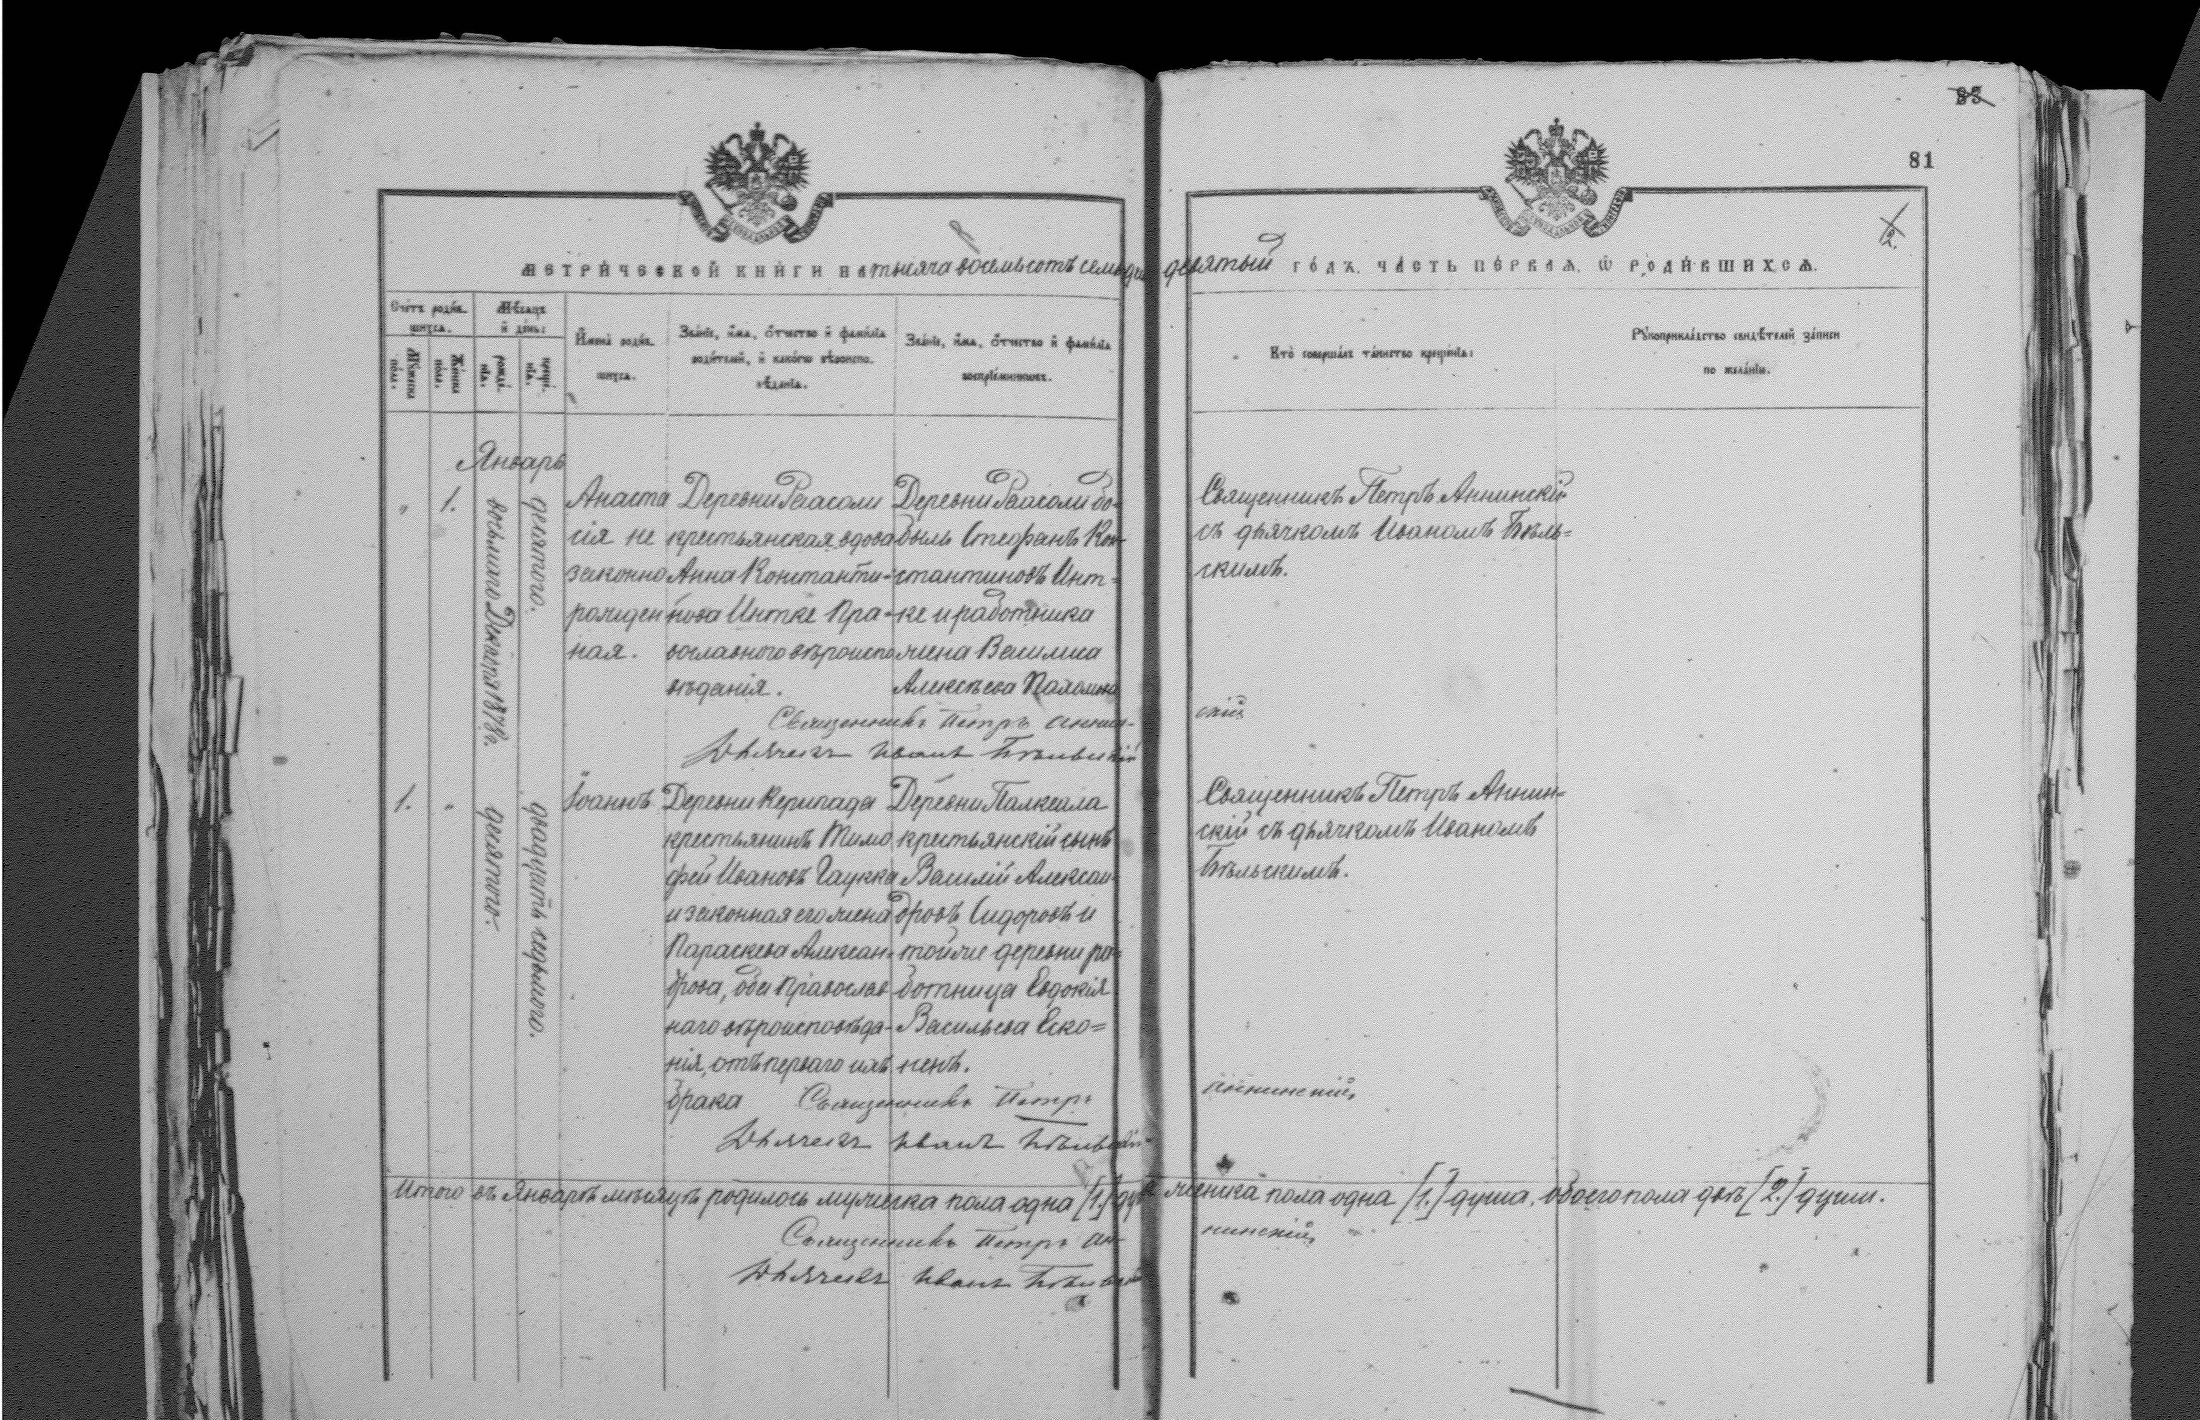 83
81
2.
МЕТРИЧЕСКОЙ КНИГИ НА тысяча восемьсотъ семьде девятый ГОДЪ, ЧАСТЬ ПЕРВАЯ, Ѡ РОДИВШИХСЯ.
Счетъ родившихся.
Мужеска пола.
Женска пола.
Мѣсяцъ и день:
рожденія.
крещенія.
Имена родившихся.
Званіе, имя, отчество и фамилія
родителей, и какого вѣроиспо-
вѣданія.
Званіе, имя, отчество и фамилія
воспріемниковъ.
Кто совершалъ таинство крещенія:
Рукоприкладство свидѣтелей записи
по желанію.
Январь
„ 1.
восьмаго Декабря 1878 г.
десятаго.
Анаста
сія не
законно
рожден
ная.
Деревни Раасоли
крестьянская вдова
Анна Константи-
нова Интке пра-
вославного вѣроиспо
вѣданія.
Деревни Раасоли бо-
быль Стефанъ Кон-
стантиновъ Инт-
ке и работника
жена Василиса
Алексѣева
Священникъ Петръ Аннинскій
съ дьячкомъ Иваномъ Бѣль=
скимъ.
Священникъ Петръ Аннин-
скій
Дьячекъ Иванъ Бѣльскій
1. „
десятаго.
двадцать седьмого.
Іоаннъ
Деревни Керипада
крестьянинъ Тимо
фей Ивановъ Гаукка
и законная его жена
Параскева Алексан-
дрова, оба православ
наго вѣроисповѣда-
нія, отъ перваго ихъ
брака
Деревни Палкеала
крестьянскій сынъ
Василій Алексан-
дровъ Сидоровъ и
той же деревни ра-
ботница Евдокія
Васильева Еско=
ненъ.
Священникъ Петръ Аннин=
скій съ дьячкомъ Иваномъ
Бѣльскимъ.
Священникъ Петръ
Аннинскій
Дьячекъ Иванъ Бѣльскій
Итого въ Январѣ мѣсяцѣ родилось мужеска пола одна [1.] душа женска пола одна [1.] душа, обоего пола двѣ [2.] души.
Священникъ Петръ Ан-
нинскій
Дьячекъ Иванъ Бѣльскій